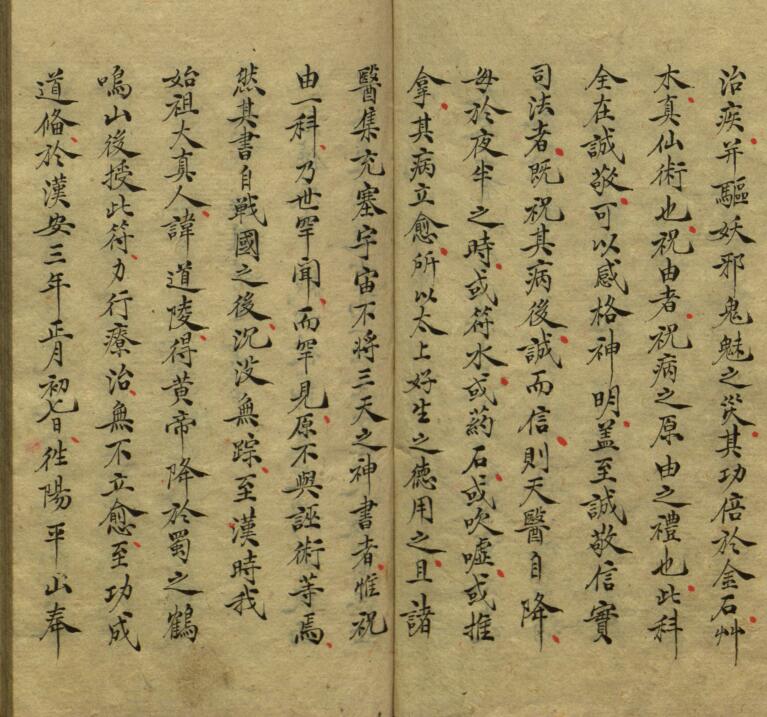 治疾并驅妖邪鬼魅之災其功倍於金石艸
木真仙術也祝由者祝病之原由之禮也此科
全在誠敬可以感格神明盖至誠敬信實
司法者既祝其病後誠而信則天醫自降
每於夜半之時或符水或葯石或吹噓或推
拿其病立愈所以太上好生之德用之且諸
醫集充塞宇宙不將三天之神書者惟祝
由一科乃世罕聞而罕見原不與誣術等焉
然其書自戰國之後沉没無踪至漢時我
始祖大真人諱道陵得黄帝降於蜀之鶴
鳴山後授此符力行療治無不立愈至功成
道偹於漢安三年正月初七日徃陽平山奉